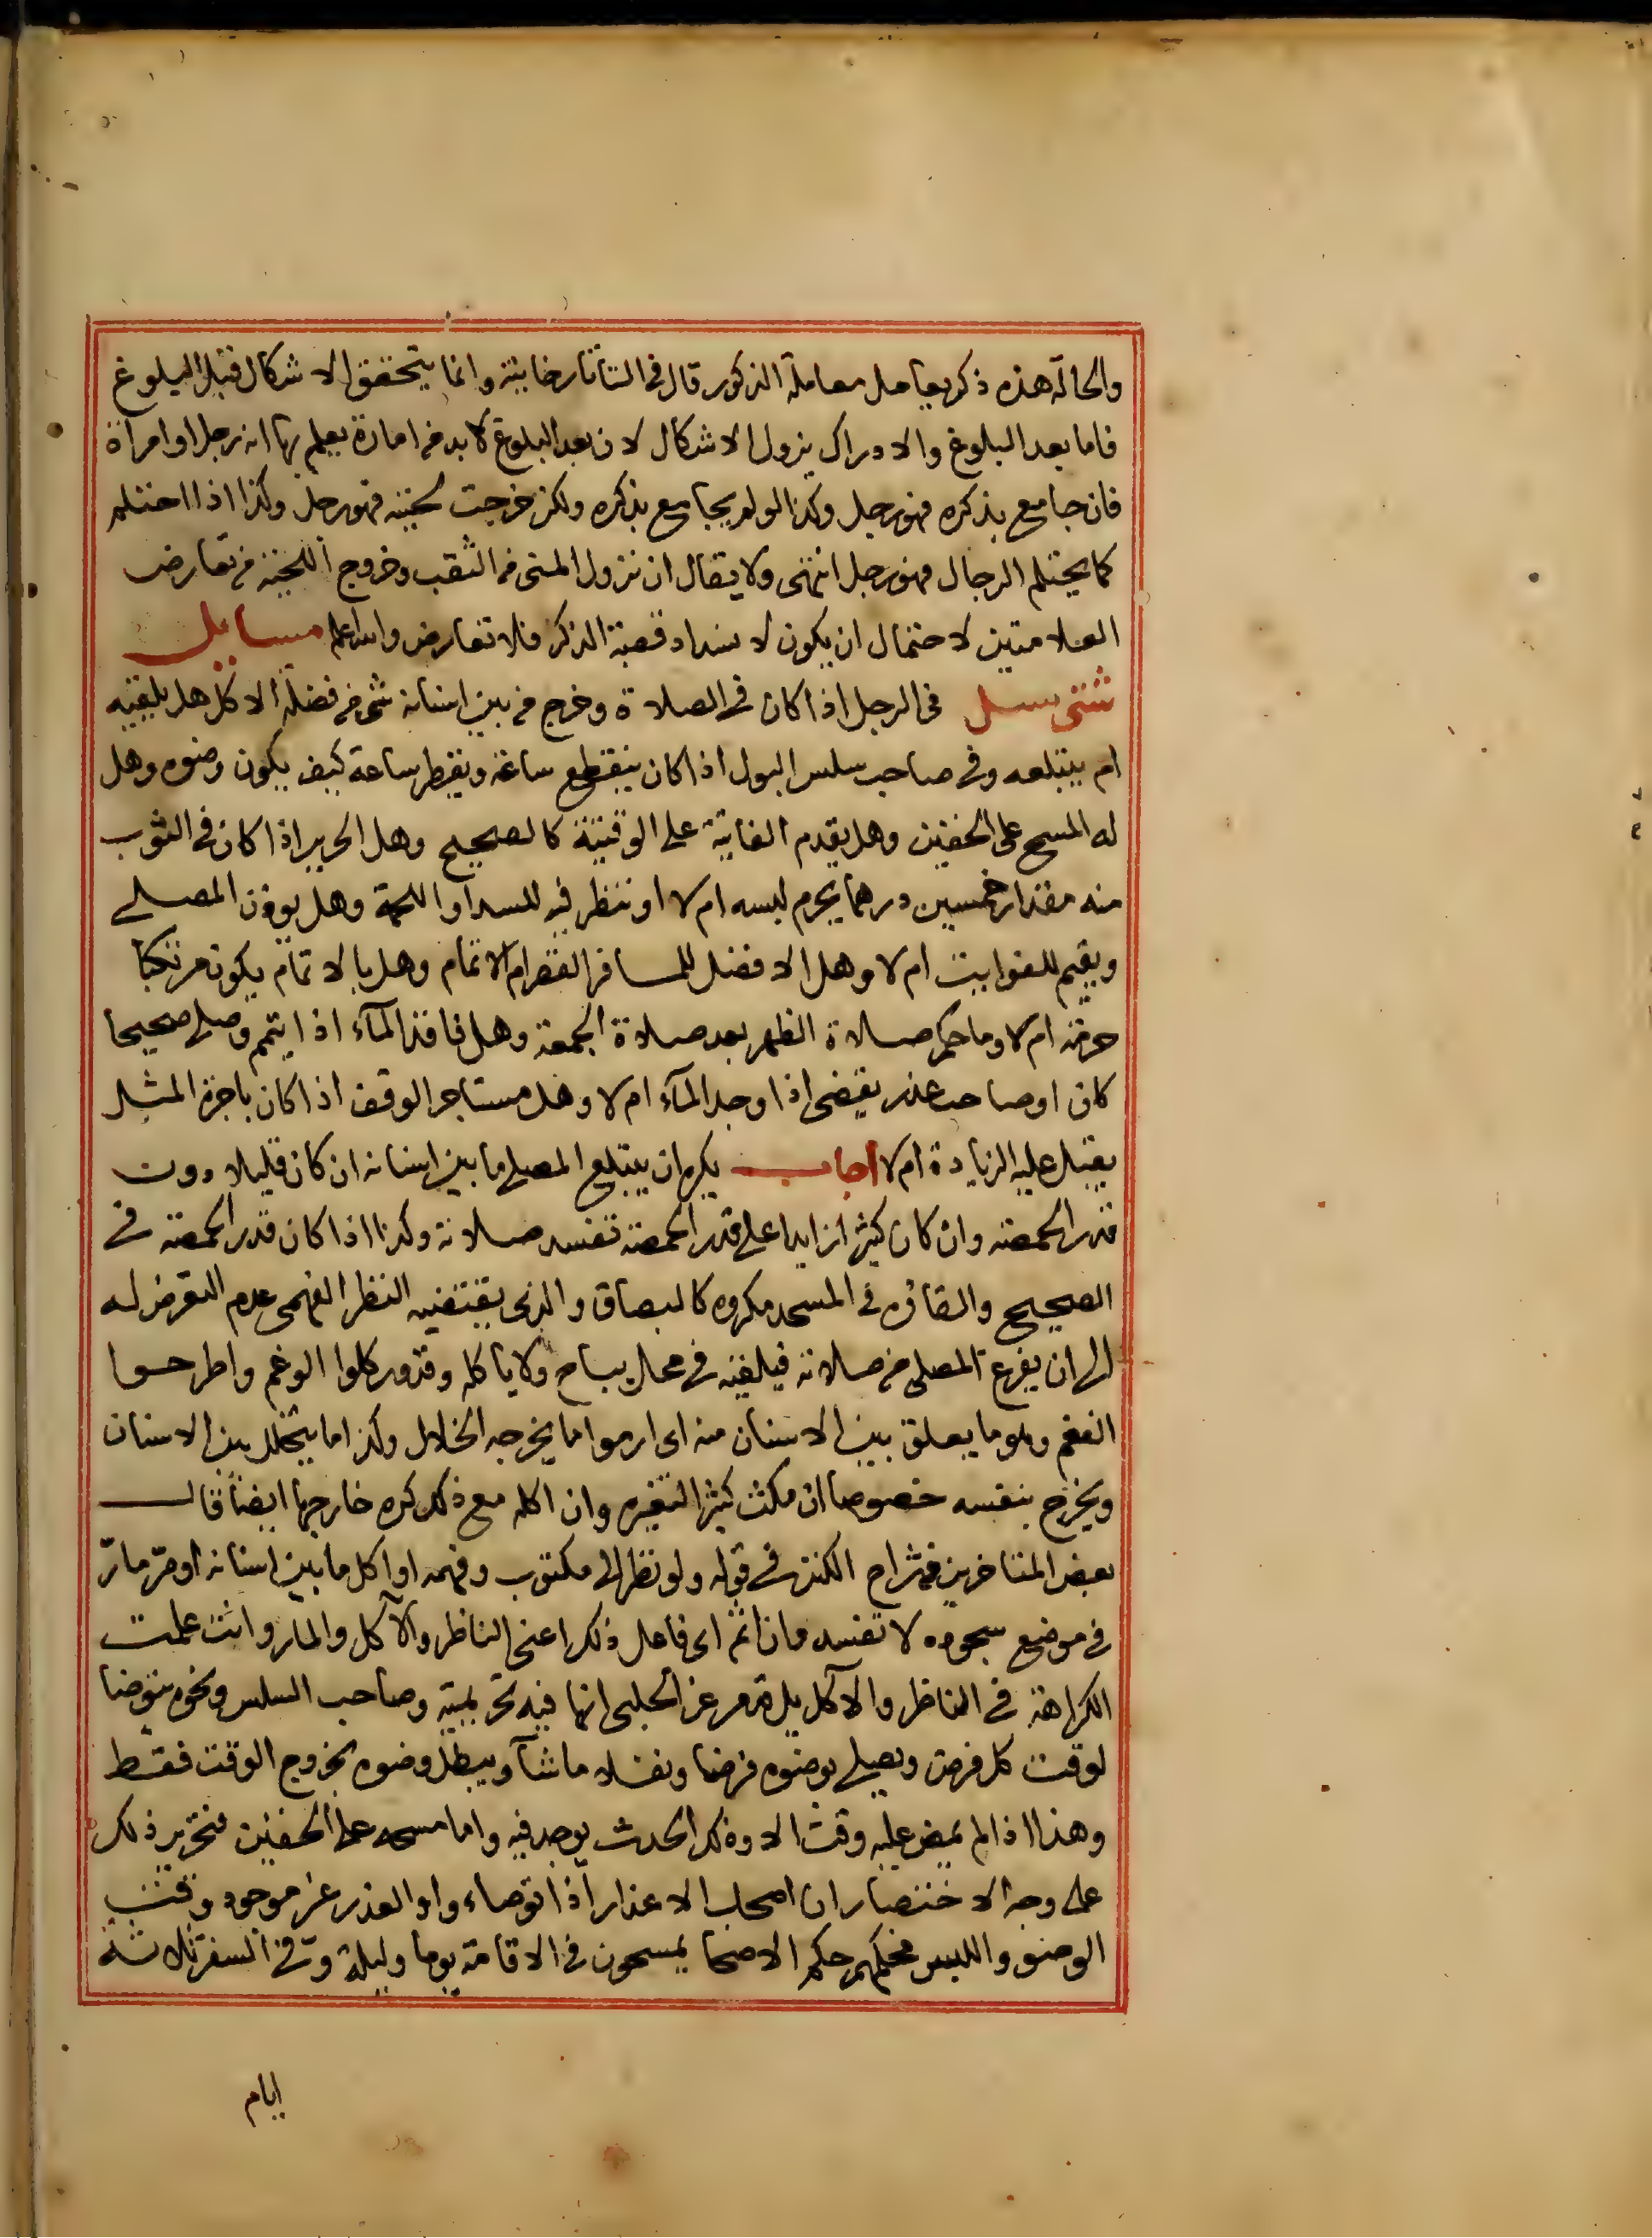 والحالة هذه ذكر يعامل معاملة الذكور قال في التاتارخانية وانما يتحقق الاشكال قبل البلوغ
فاما بعد البلوغ والادراك يزول الاشكال لان بعد البلوغ لا بد من امارة يعلم بها انه رجل او امراة
فان جامع بذكره فهو رجل وكذا لو لم يجامع بذكره ولكن خرجت لحيته فهو رجل وكذا اذا احتلم
كما يحتلم الرجال فهو رجل انتهى ولا يقال ان نزول المني من الثقب وخروج اللحية من تعارض
العلامتين لاحتمال ان يكون لانسداد قصبة الذكر فلا تعارض والله اعلم مسايل
شتى سيل في الرجل اذا كان في الصلاة وخرج من بين اسنانه شي من فضلة الاكل هل يلقيه
ام يبتلعه وفي صاحب سلس البول اذا كان ينقطع ساعة ويقطر ساعة كيف يكون وضوه وهل
له المسح على الخفين وهل يقدم الفايتة على الوقتية كالصحيح وهل الحرير اذا كان في الثوب
منه مقدار خمسين درهما يحرم لبسه ام لا او ننظر فيه للسدا واللحمة وهل يوذن المصلي
ويقيم للفوايت ام لا وهل الافضل للمسافر القصر ام الاتمام وهل بالاتمام يكون مرتكبا
حرمة ام لا وما حكم صلاة الظهر بعد صلاة الجمعة وهل فاقد المآء اذا تيمم وصلى صحيحا
كان او صاحب عذر يقضي اذا وجد المآء ام لا وهل مستاجر الوقف اذا كان باجرة المثل
يقبل عليه الزيادة ام لا اجاب يكره ان يبتلع المصلي ما بين اسنانه ان كان قليلا دون
قدر الحمصة وان كان كثيرا زايدا على قدر الحمصة تفسد صلاته وكذا اذا كان قدر الحمصة في
الصحيح والقاؤه في المسجد مكروه كالبصاق والذي يقتضيه النظر الفهمي عدم التعرض له
الى ان يفرغ المصلي من صلاته فيلقيه في محل يباح ولا ياكله وقد ورد كلوا الوغم واطرحوا
الفغم وهو ما يعلق بين الاسنان منه اي ارموا ما يخرجه الخلال وكذا ما يتخلل بين الاسنان
ويخرج بنفسه خصوصا ان مكث كثيرا لتغيره وان اكله مع ذلك كره خارجها ايضا قال
بعض المتاخرين من شراح الكنز في قوله ولو نظر الى مكتوب وفهمه او اكل ما بين اسنانه او مر مار
في موضع سجوده لا تفسد وان اثم اي فاعل ذلك اعني الناظر والآكل والمار وانت علمت
الكراهة في الناظر والآكل بل قد مر عن الحلبي انها فيه تحريمية وصاحب السلس ونحوه يتوضا
لوقت كل فرض ويصلي بوضوه فرضا ونفلا ما شآ ويبطل وضوه بخروج الوقت فقط
وهذا اذا لم يمض عليه وقت الا وذلك الحدث يوجد فيه واما مسحه على الخفين فتحرير ذلك
على وجه الاختصار ان اصحاب الاعذار اذا توضاء واو العذر غير موجود وقت
الوضو واللبس فحكمهم حكم الاصحا يمسحون في الاقامة يوما وليلة وفي السفر ثلاثة
ايام